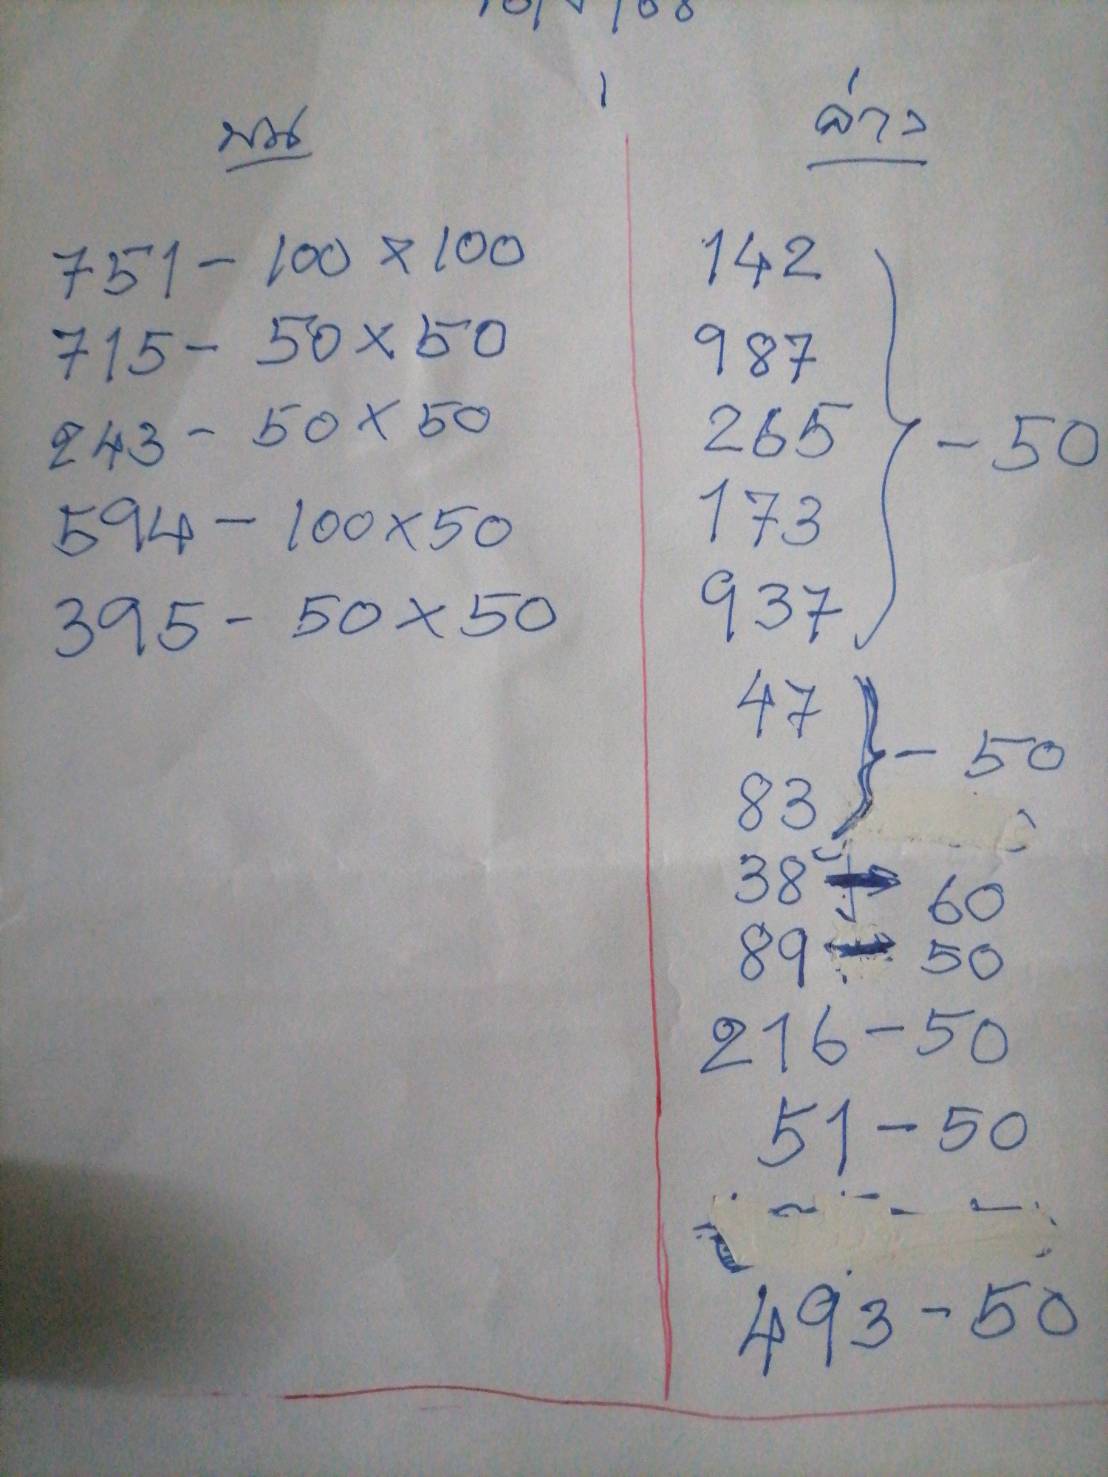 บน
751 - 100 x 100
715 - 50 x 50
243 - 50 x 50
594 - 100 x 50
395 - 50 x 50
ล่าง
142
987
265
173
937
- 50
47
83
- 50
38 → 60
89 → 50
216 - 50
51 - 50
493 - 50